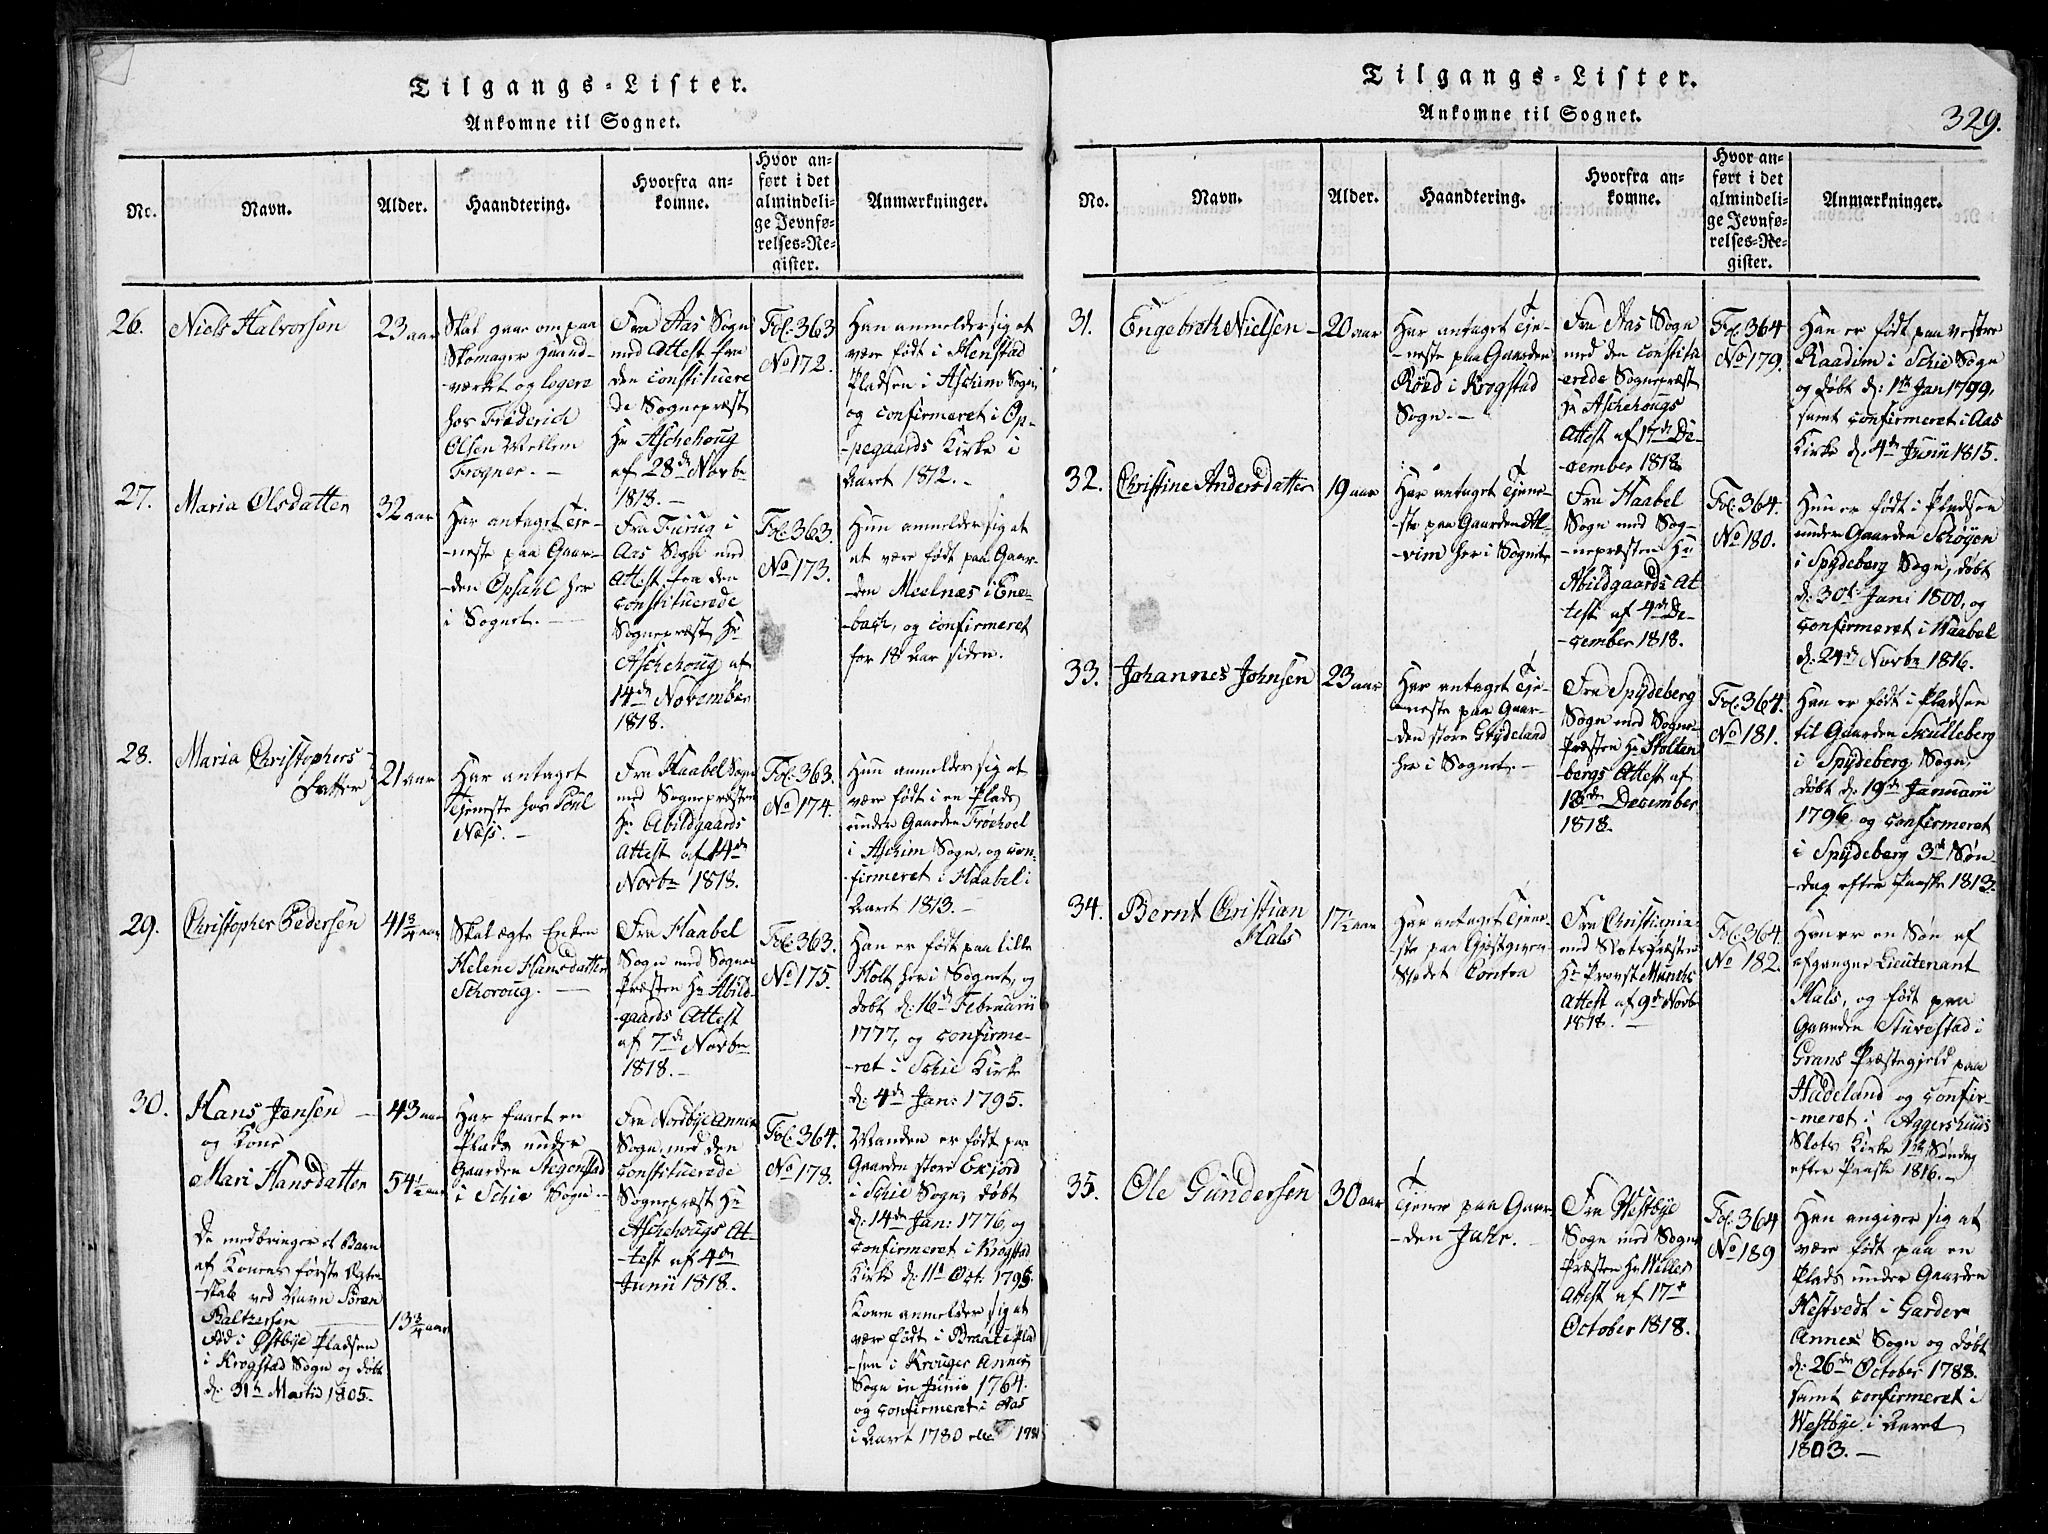 Tilgangs-Lister.
Ankomne til Sognet.
No.
Navn.
Alder.
Haandtering.
Hvorfra an-
komne.
Hvor an-
ført i det
almindeli-
ge Jevnfø-
relses-Re-
gister.
Anmærkninger.
26.
Niels Halvorsen
23 aar
Skal gaae om paa
Skomager Haand-
værket og logere
hos Friderich
Olsen Mellem
Frogner. —
Fra Aas Sogn
med Attest fra
den constituere
de Sognepræst
Hr Aschehoug
af 28de Novbr
1818. —
Fol: 363
No 172.
Han anmelder sig at
være født i Henstad
Pladsen i Aschim Sogn,
og confirmeret i Op-
-pegaards Kirke i
Aaret 1812. —
27.
Maria Olsdatter
32 aar
Har antaget Tje-
-neste paa Gaar-
-den Opsahl her
i Sognet. —
Fra Furug i
Aas Sogn med
Attest fra den
constituerede
Sognepræst Hr
Aschehoug af
14de November
1818.
Fol: 363.
No 173.
Hun anmelder sig at
at være født paa Gaar-
-den Meelnæs i Ene-
-bach, og confirmeret
for 18 Aar siden.
28.
Maria Christophers
datter
21 aar
Har antaget
Tjeneste hos Poul
Næss. —
Fra Haabel Sogn
med Sognepræsten
Hr Abildgaards
Attest af 14de
Novbr 1818.
Fol: 363.
No 174.
Hun anmelder sig at
være født i en Plads
under Gaarden Frøshoel
i Aschim Sogn, og con-
-firmeret i Haabel i
Aaret 1813. —
29.
Christopher Pedersen
41¾ aar
Skal ægte Enken
Helene Hansdatter
Schoroug. —
Fra Haabel
Sogn med Sogne
Præsten Hr Abild-
-gaards Attest
af 7de Novbr
1818. —
Fol: 363.
No 175.
Han er født paa lille
Holt her i Sognet, og
døbt d: 16de Februarii
1777, og confirme-
-ret i Schie Kirke
d: 4de Jan: 1795.
30.
Hans Jensen —
og Kone
Mari Hansdatter
43 aar
54½ aar
Har faaet en
Plads under
Gaarden Stegenstad
i Schie Sogn —
Fra Nordbye Annex
Sogn, med den
constituerede
Sognepræst Hr
Aschehougs At-
-test af 4de
Junii 1818.
Fol: 364.
No 178.
Manden er født paa
Gaarden store Exjord
i Schie Sogn, døbt
d: 14de Jan: 1776, og
confirmeret i Krogstad
Kirke d: 11te Oct: 1795.
Konen anmelder sig at
være født i Braate Plad
-sen i Krouger Annex
Sogn in Junii 1764.
og confirmeret i Aas
i Aaret 1780 elle 1781
De medbringer et Barn
af Konens første Ægte-
-skab ved Navn Søren
Baltzersen
Fød i Østbye Pladsen
i Krogstad Sogn og døbt
d: 31te Martii 1805.
13¾ aar
Tilgangs-Lister.
Ankomne til Sognet.
329.
No.
Navn.
Alder.
Haandtering.
Hvorfra an-
komne.
Hvor an-
ført i det
almindeli-
ge Jevnfø-
relses-Re-
gister.
Anmærkninger.
31.
Engebreth Nielsen —
20 aar
Har antaget Tje-
-neste paa Gaarden
Røed i Krogstad
Sogn. —
Fra Aas Sogn
med den constitu
erede Sognepræst
Hr Aschehougs
Attest af 17de De-
-cember 1818.
Fol: 364
No 179.
Han er født paa vestre
Raadim i Schie Sogn
og døbt d: 1ste Jan 1799,
samt confirmeret i Aas
Kirke d: 4de Junii 1815.
32.
Christine Andersdatter
19 aar
Har antaget Tjene-
-ste paa Gaarden Al-
-vim her i Sognet.
Fra Haabel
Sogn med Sog-
-nepræsten Hr
Abildgaards At-
-test af 4de De-
-cember 1818.
Fol: 364.
No 180.
Hun er født i Pladsen
under Gaarden Schøyen
i Spydeberg Sogn, døbt
d: 30te Juni 1800, og
confirmeret i Haabel
d: 24de Novbr 1816.
33.
Johannes Johnsen
23 aar
Har antaget Tje-
-neste paa Gaar-
-den store Grydeland
her i Sognet. —
Fra Spydeberg
Sogn med Sogne
Præsten Hr Stolten
-bergs Attest af
18de December
1818.
Fol: 364.
No 181.
Han er født i Pladsen
til Gaarden Skulleberg
i Spydeberg Sogn,
døbt d: 19de Januarii
1796, og confirmeret
i Spydeberg 3de Søn-
-dag efter Paaske 1813.
34.
Bernt Christian
Hals
17½ aar
Har antaget Tjene-
-ste paa Gjestgiver-
-Stædet Contra
Fra Christiania
med Slots Præsten
Hr Provst Munchs
Attest af 9de Novbr
1818. —
Fol: 364.
No 182.
Han er en Søn af
afgangne Lieutenant
Hals, og født paa
Gaarden Sturestad i
Grans Præstegjeld paa
Hadeland og confir-
-meret i Aggershuus
Slots Kirke 1ste Søndag
efter Paaske 1816. —
35.
Ole Gundersen
30 aar
Tjener paa Gaar-
-den Jahr. —
Fra Westbye
Sogn med Sogne
Præsten Hr Willes
Attest af 17de
October 1818.
Fol: 364
No 189
Han angiver sig at
være født paa en
Plads under Gaarden
Kestvedt i Garder
Annex Sogn og døbt
d: 26de October 1788.
samt confirmeret i
Westbye i Aaret
1803. —